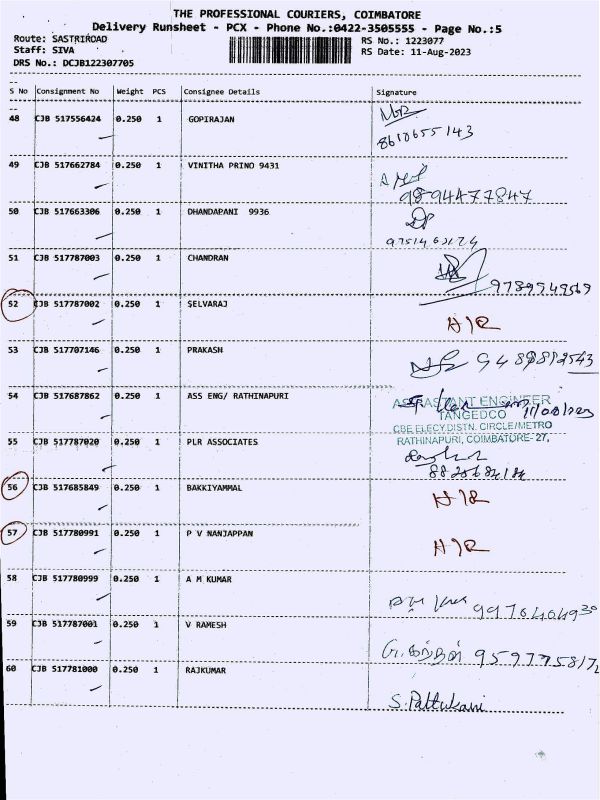 THE PROFESSIONAL COURIERS, COIMBATORE
Delivery Runsheet - PCX - Phone No.:0422-3505555 - Page No.:5
Route: SASTRIROAD RS No.: 1223077
Staff: SIVA RS Date: 11-Aug-2023
DRS No.: DCJB122307705
S No Consignment No Weight PCS Consignee Details Signature
48 CJB 517556424 0.250 1 GOPIRAJAN
8610655143
49 CJB 517662784 0.250 1 VINITHA PRINO 9431
9894477847
50 CJB 517663306 0.250 1 DHANDAPANI 9936
51 CJB 517787003 0.250 1 CHANDRAN
9789949569
52 CJB 517787002 0.250 1 SELVARAJ
H/R
53 CJB 517707146 0.250 1 PRAKASH
54 CJB 517687862 0.250 1 ASS ENG/ RATHINAPURI
ASSISTANT ENGINEER
TANGEDCO
CBE ELECY.DISTN. CIRCLE/METRO
RATHINAPURI, COIMBATORE- 27.
55 CJB 517787020 0.250 1 PLR ASSOCIATES
56 CJB 517685849 0.250 1 BAKKIYAMMAL
H/R
57 CJB 517780991 0.250 1 P V NANJAPPAN
H/R
58 CJB 517780999 0.250 1 A M KUMAR
59 CJB 517787001 0.250 1 V RAMESH
60 CJB 517781000 0.250 1 RAJKUMAR